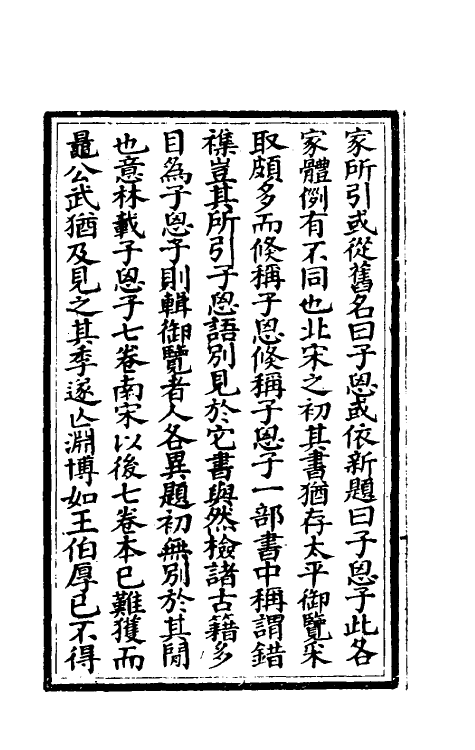 家所引或從舊名曰子思或依新題曰子思子此各
家體例有不同也北宋之初其書猶存太平御覽采
取頗多而倐稱子思倐稱子思子一部書中稱謂錯
襍豈其所引子思語別見於它書與然檢諸古籍多
目為子思子則輯御覽者人各異題初無別於其閒
也意林載子思子七卷南宋以後七卷本已難獲而
鼂公武猶及見之其季遂亾淵博如王伯厚已不得